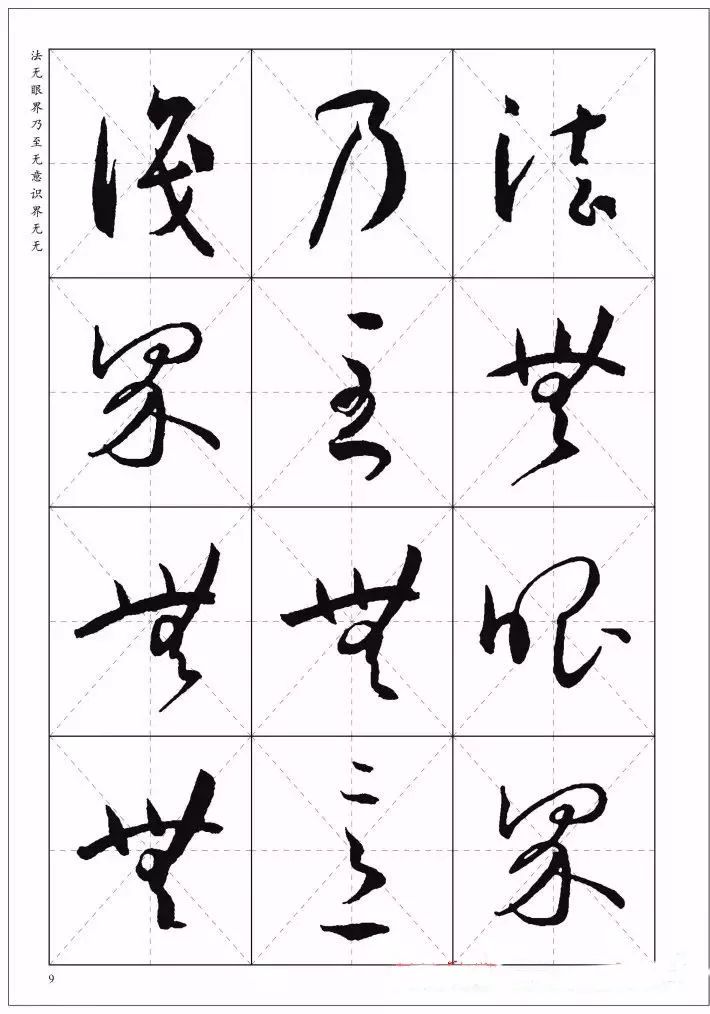 法无眼界乃至无意识界无无
法無眼界
乃至無意
識界無無
9